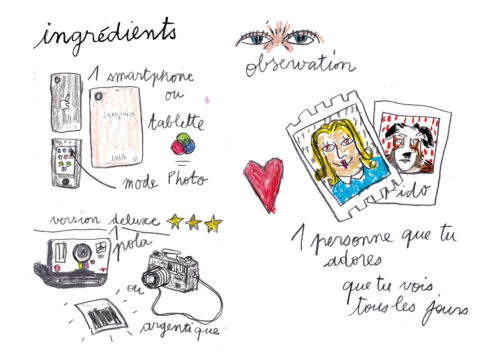 ingrédients
1 smartphone
ou
tablette
SAMSUNG
mode Photo
version deluxe
1 pola
ou
argentique
observation
ido
1 personne que tu
adores
que tu vois
tous les jours